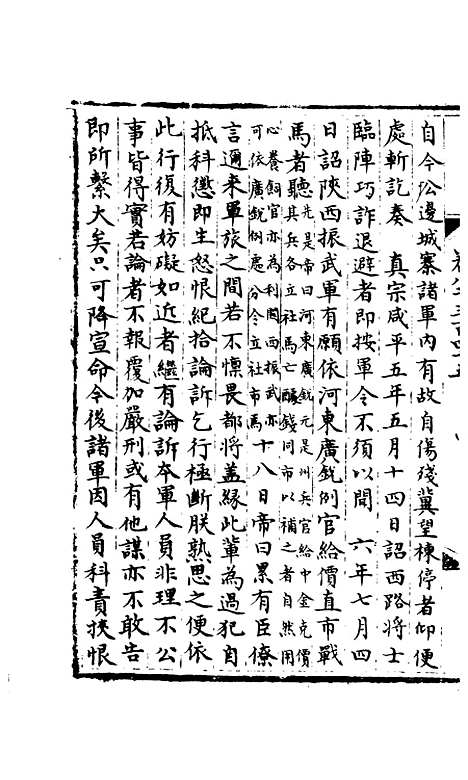 自今㳂邊城寨諸軍内有故自傷殘冀望棟停者仰便
處斬訖奏　真宗咸平五年五月十四日詔西路將士
臨陣巧詐退避者即按軍令不須以聞　六年七月四
日詔陝西振武軍有願依河東廣銳例官給價直市戰
馬者聽其兵各立社馬亡醵錢同市以補之者自然用
先是帝曰河東廣銳元是州兵官給中金充價
心養飼官亦為利関西振武亦
可依廣銳例處分令立社市馬十八日帝曰累有臣僚
言邇来軍旅之間若不懍畏都將盖緣此軰為過犯自
抵科懲即生怒恨紀拾論訴乞行極斷朕熟思之便依
此行復有妨礙如近者繼有論訴本軍人員非理不公
事皆得實若論者不報覆加嚴刑或有他謀亦不敢告
即所繫大矣只可降宣命令後諸軍因人員科責挾恨